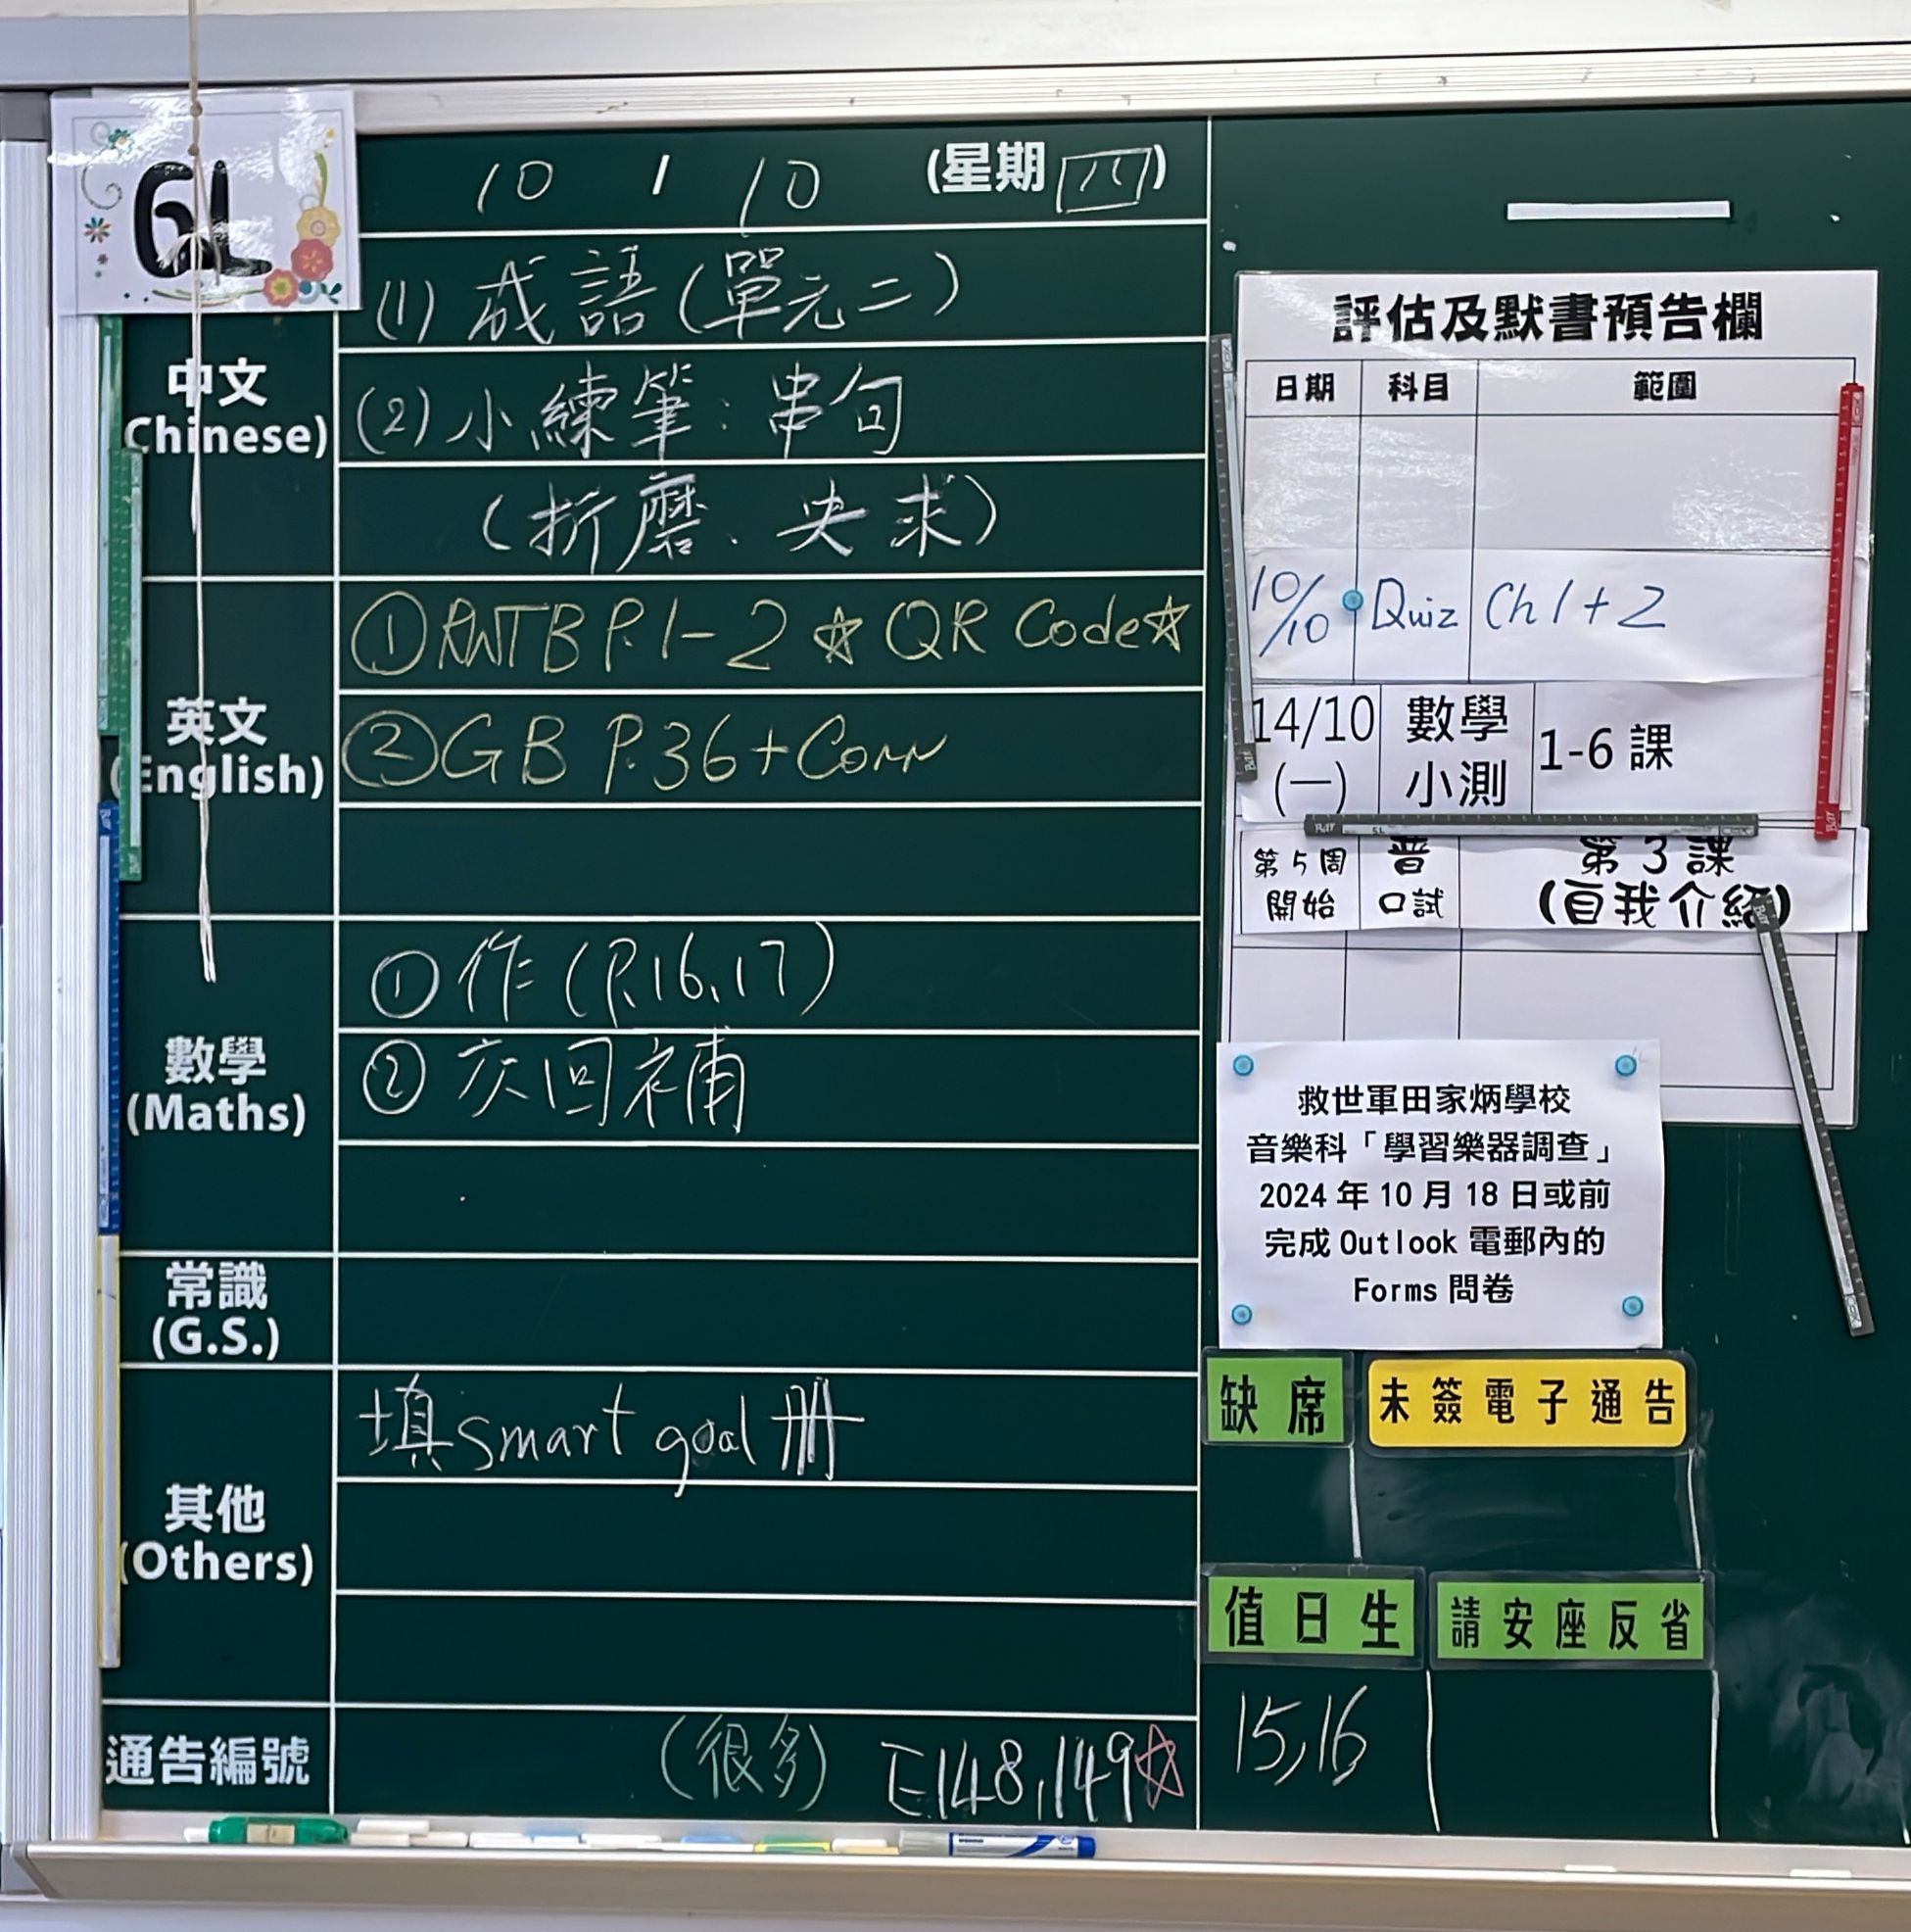 6L
10 / 10 (星期四)
中文
(Chinese)
(1) 成語(單元二)
(2) 小練筆：串句
(折磨、央求)
英文
(English)
① RWTB P.1-2 ☆ QR Code☆
② GB P.36+Corr
數學
(Maths)
① 作 (P.16,17)
② 灰回補
常識
(G.S.)
其他
(Others)
填smart goal 冊
通告編號
(很多) E148,149☆
評估及默書預告欄
日期 科目 範圍
10/10 Quiz Ch 1+2
14/10 數學 1-6 課
(一) 小測
第5周 普 第3課
開始 口試 (自我介紹)
救世軍田家炳學校
音樂科「學習樂器調查」
2024 年 10 月 18 日或前
完成 Outlook 電郵內的
Forms 問卷
缺席 未簽電子通告
值日生 請安座反省
15,16